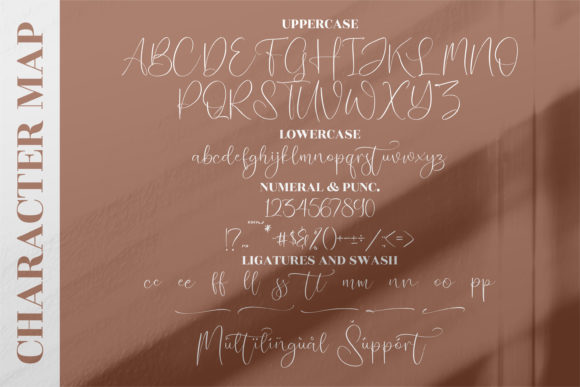 CHARACTER MAP
UPPERCASE
ABCDEFGHIJKLMNO
PQRSTUVWXYZ
LOWERCASE
abcdefghijklmnopqrstuvwxyz
NUMERAL & PUNC.
1234567890
LIGATURES AND SWASH
cc ee ff ll ss tt mm nn oo pp
Multilingùål Šúppórt